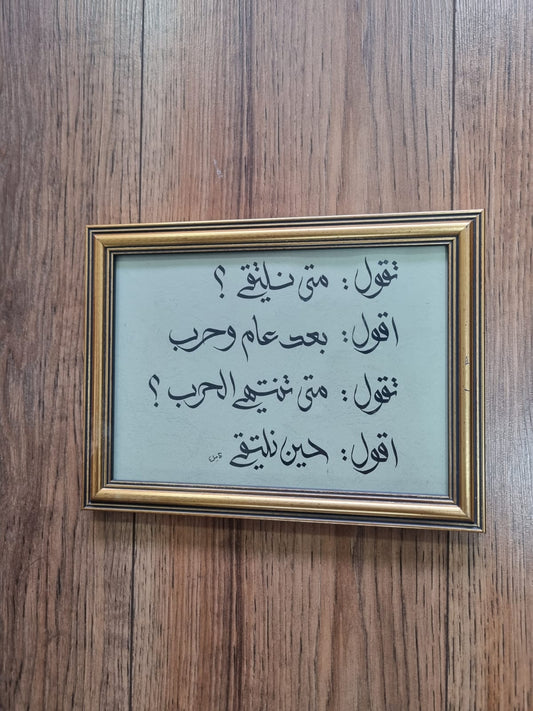 تقول : متى نلتقي ؟
اقول : بعد عام وحرب
تقول : متى تنتهي الحرب ؟
اقول : حين نلتقي